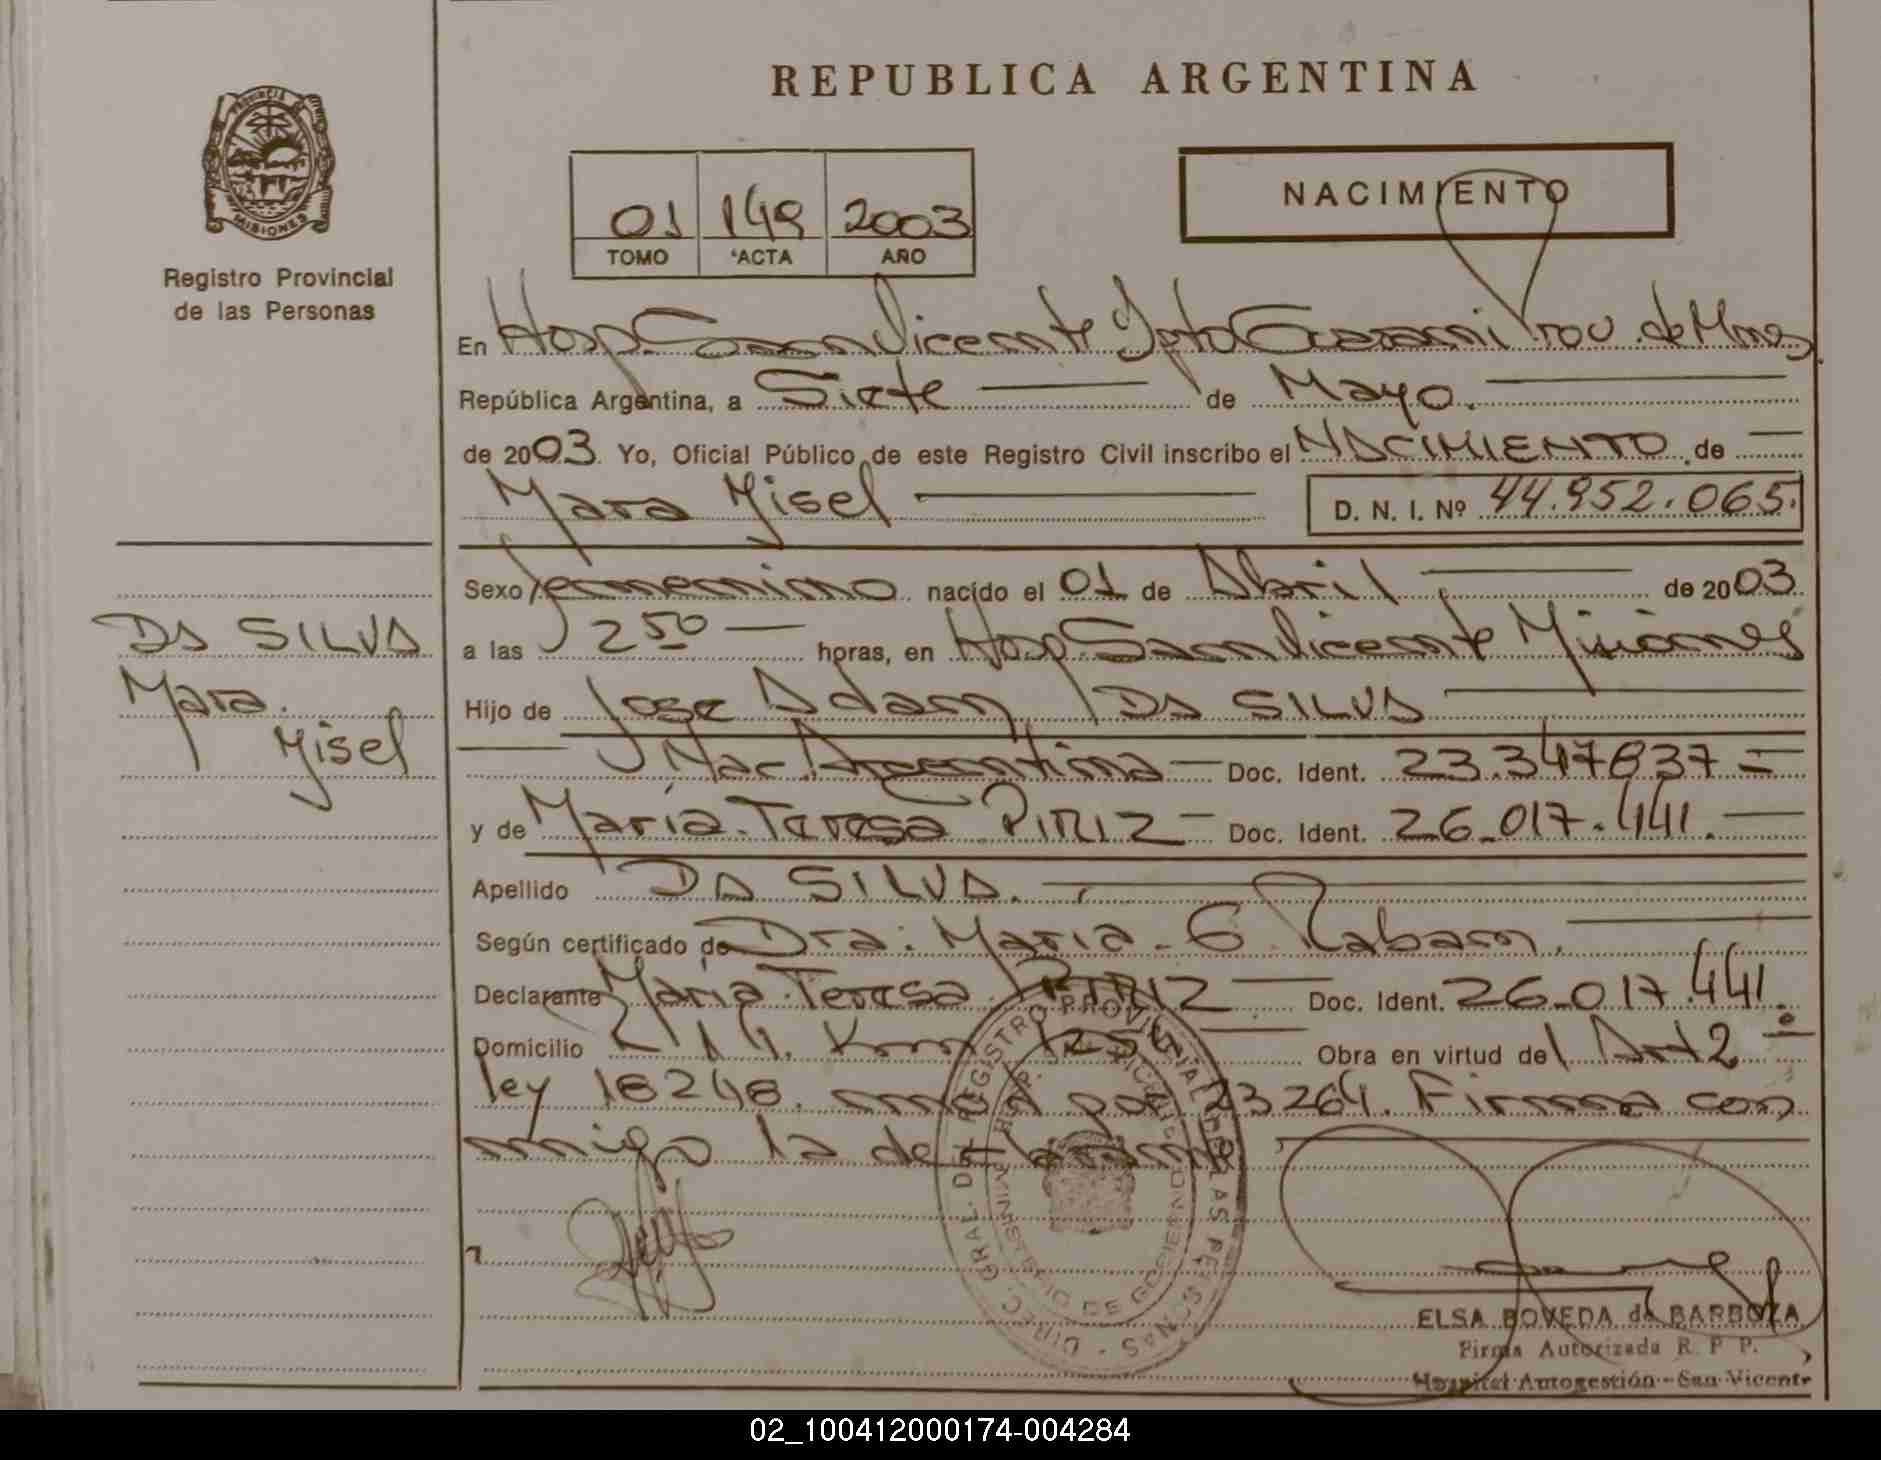 REPUBLICA ARGENTINA
PROVINCIA
MISIONES
Registro Provincial
de las Personas
01 149 2003
TOMO ACTA AÑO
NACIMIENTO
En Hosp. San Vicente Dpto Guarani Prov. de Mnes
República Argentina, a Siete de Mayo.
de 2003. Yo, Oficial Público de este Registro Civil inscribo el NACIMIENTO de
Mara Yisel
D. N. I. Nº 44.952.065.
Sexo femenino nacido el 01 de Abril de 2003
a las 2 50 horas, en Hosp. San Vicente Misiones
Hijo de Jose Adan DA SILVA
Nac. Argentina Doc. Ident. 23.347837
y de María Teresa PIRIZ Doc. Ident. 26.017.441.
Apellido DA SILVA.
Según certificado de Dra. Maria G. Raban.
Declarante María Teresa PIRIZ Doc. Ident. 26.017.441.
Domicilio R 14. Km 1254 Obra en virtud de Art 2º
ley 18248. mod por 23264. Firma con
migo la declarante
DA SILVA
Mara.
Yisel
DIREC. GRAL. DEL REGISTRO PROVINCIAL DE LAS PERSONAS
MINISTERIO DE GOBIERNO
ELSA BOVEDA de BARBOZA
Firma Autorizada R. P. P.
Hospital Autogestión - San Vicente
02_100412000174-004284